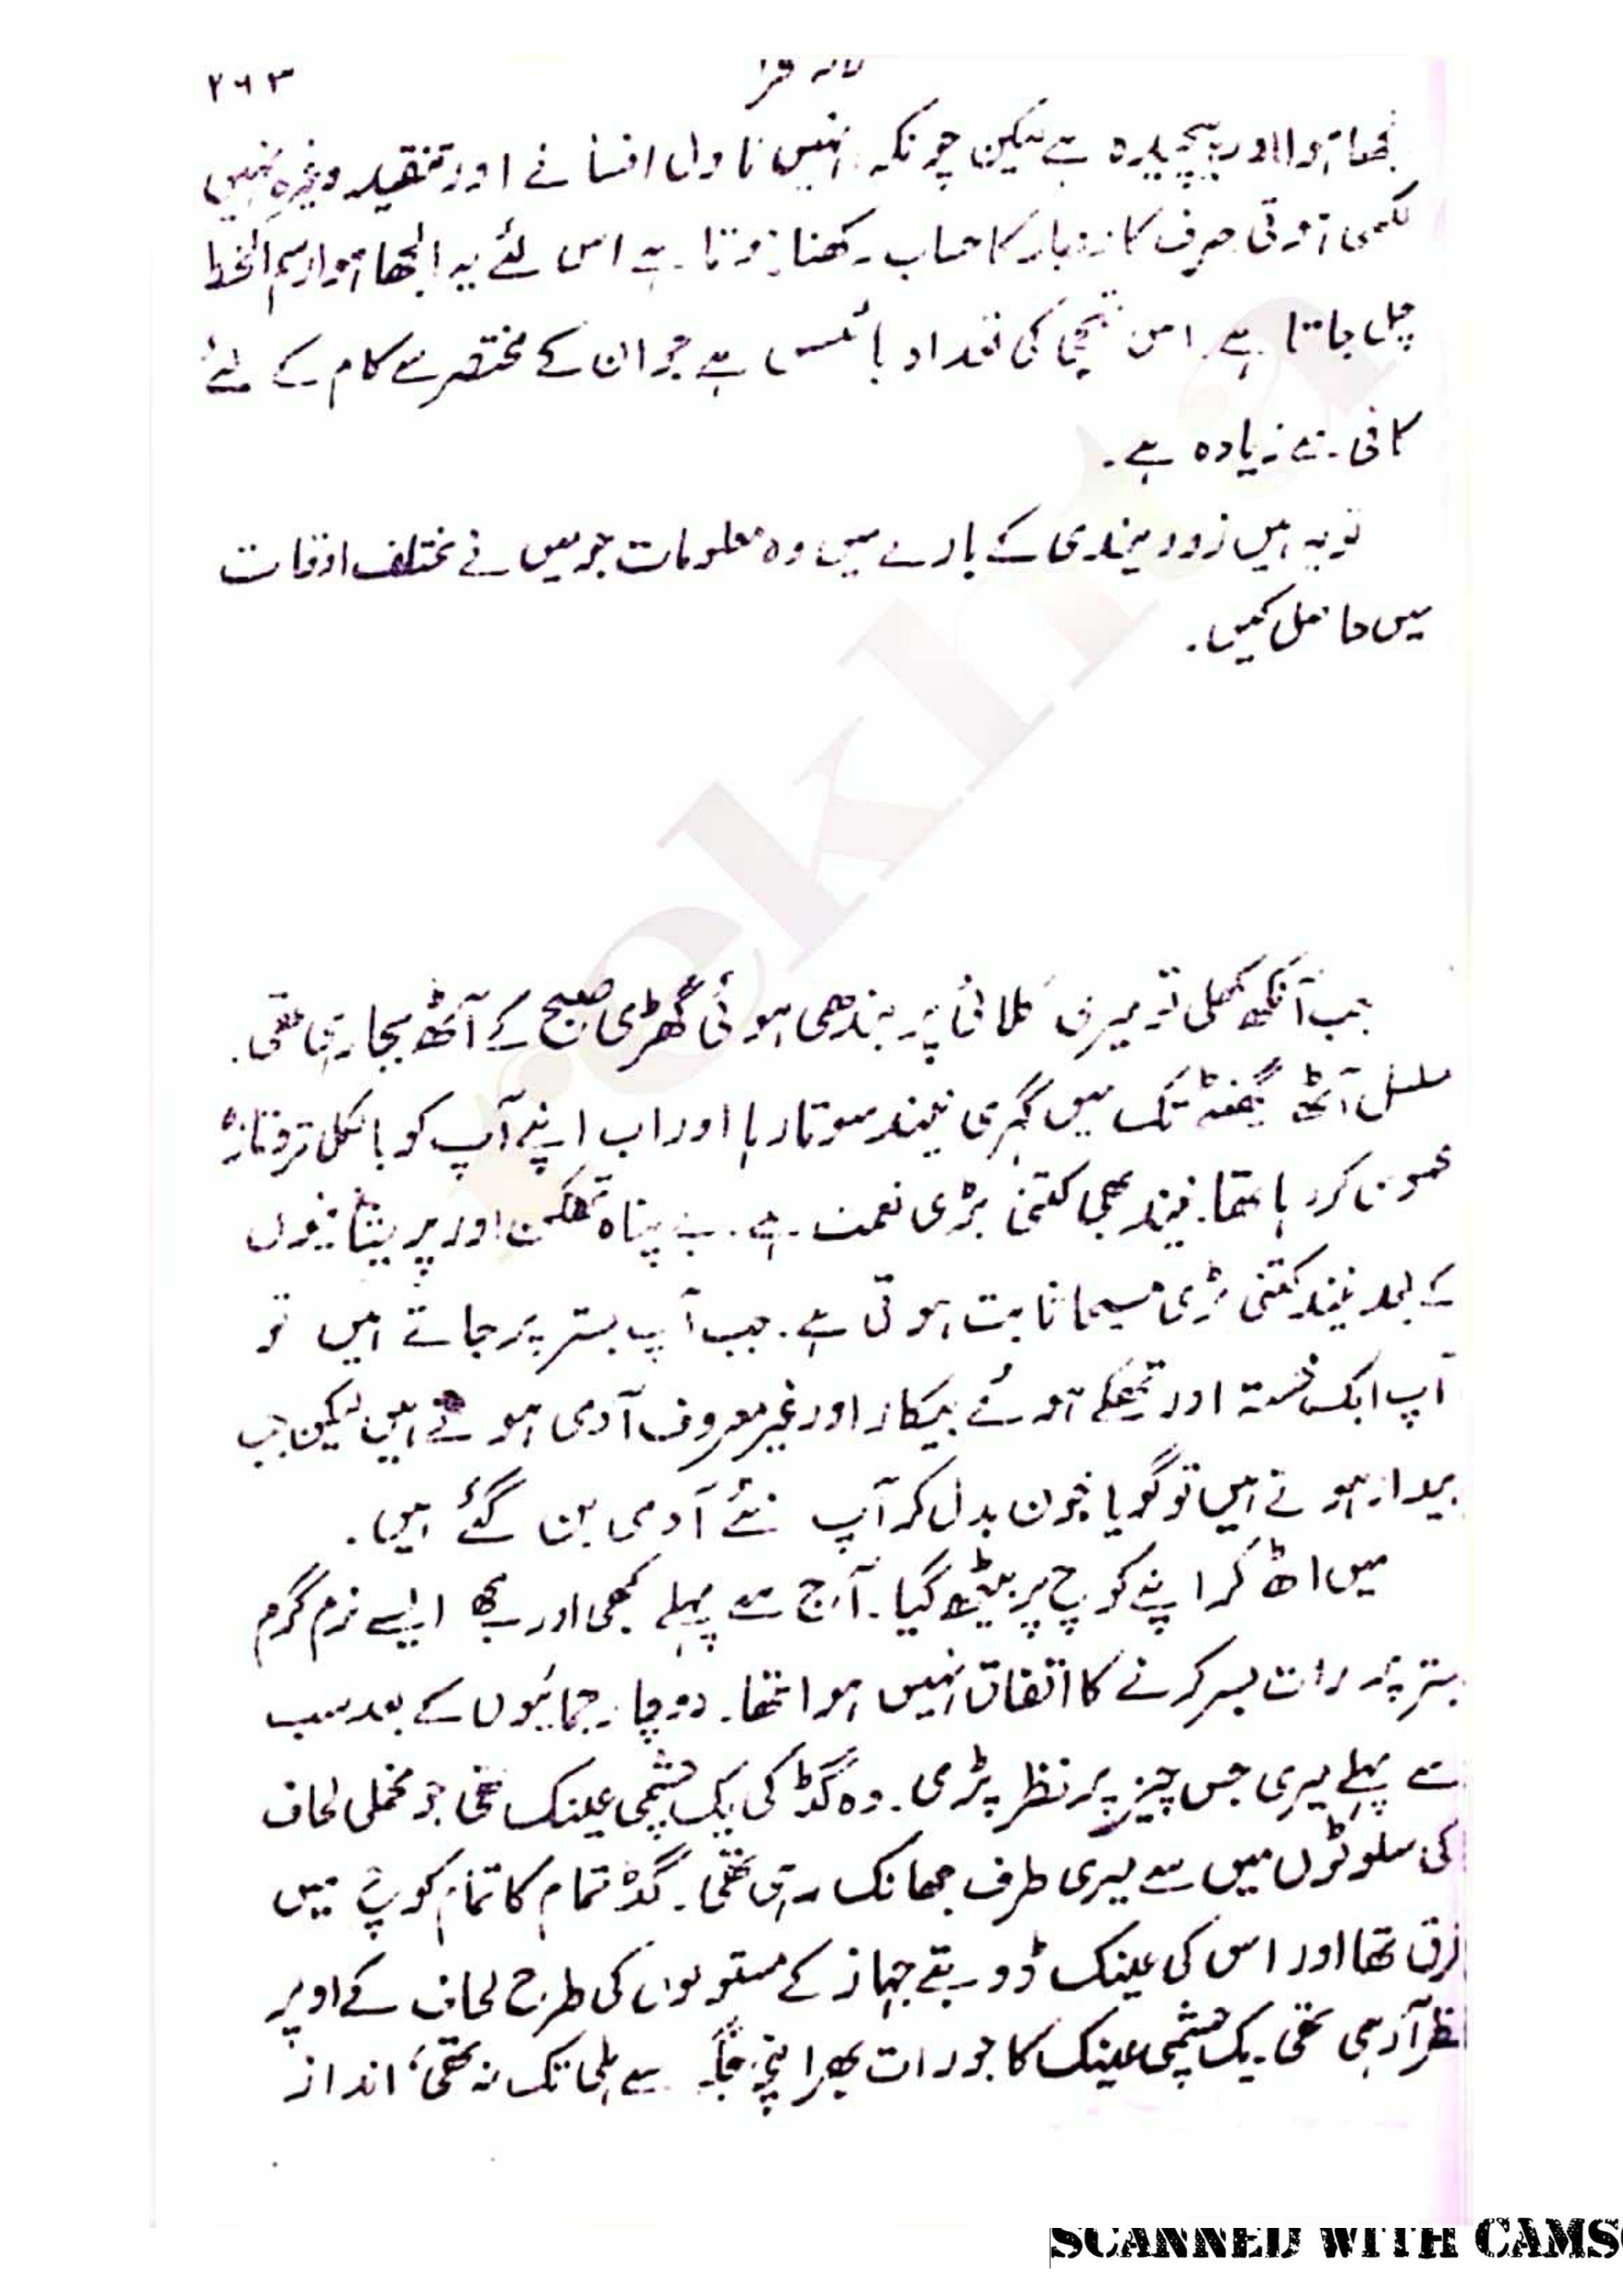 ۲۶۳
الجھا ہوا اور پیچیدہ ہے لیکن چونکہ انہیں ناول افسانے اور تنقید وغیرہ نہیں
لکھنی ہوتی صرف کاروبار کا حساب رکھنا ہوتا ہے اس لئے یہ الجھا ہوا رسم الخط
چل جاتا ہے۔ اس کی تعداد بائیس ہے جو ان کے مختصر سے کام کے لئے
کافی سے زیادہ ہے۔
تو یہ ہیں زود ہندی کے بارے میں وہ معلومات جو میں نے مختلف اوقات
میں حاصل کیں۔
جب آنکھ کھلی تو میری کلائی پر بندھی ہوئی گھڑی صبح کے آٹھ بجا رہی تھی۔
مسلسل آٹھ گھنٹہ تک میں گہری نیند سوتا رہا اور اب اپنے آپ کو بالکل تر و تازہ
محسوس کر رہا تھا۔ نیند بھی کتنی بڑی نعمت ہے۔ بے پناہ تھکن اور پریشانیوں
کے بعد نیند کتنی بڑی مسیحا ثابت ہوتی ہے۔ جب آپ بستر پر جاتے ہیں تو
آپ ایک خستہ اور تھکے ہوئے بیکار اور غیر معروف آدمی ہوتے ہیں لیکن جب
بیدار ہوتے ہیں تو گویا جون بدل کر آپ نئے آدمی بن گئے ہیں۔
میں اٹھ کر اپنے کوچ پر بیٹھ گیا۔ آج سے پہلے کبھی اور مجھے ایسے نرم گرم
بستر پر رات بسر کرنے کا اتفاق نہیں ہوا تھا۔ دو چار جمائیوں کے بعد سب
سے پہلے میری جس چیز پر نظر پڑی۔ وہ گڈ کی یک چشمی عینک تھی جو مخملی لحاف
کی سلوٹوں میں سے میری طرف جھانک رہی تھی۔ گڈ تمام کا تمام کوچ میں
غرق تھا اور اس کی عینک ڈوبتے جہاز کے مستولوں کی طرح لحاف کے اوپر
نظر آ رہی تھی۔ یک چشمی عینک کا جو رات بھر اپنی جگہ سے ہلی تک نہ تھی، انداز
SCANNED WITH CAMS